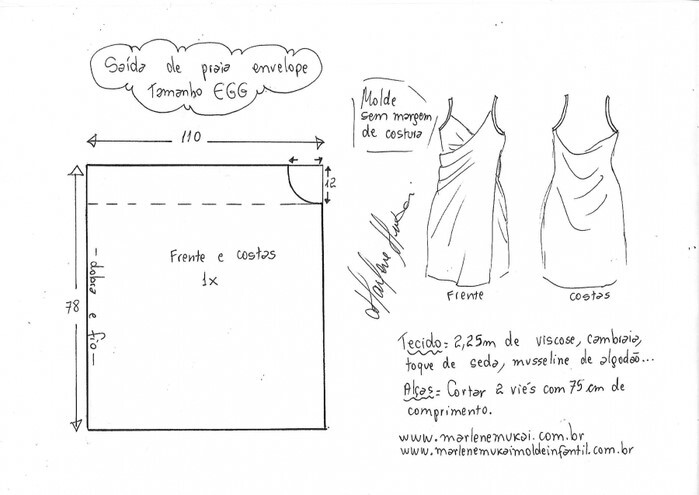 Saída de praia envelope
Tamanho EGG
110
12
78
- dobra e fio -
Frente e costas
1x
Molde
sem margem
de costura
Marlene Mukai
Frente
costas
Tecido = 2,25m de viscose, cambraia,
toque de seda, musseline de algodão...
Alças = Cortar 2 viés com 75 cm de
comprimento.
www.marlenemukai.com.br
www.marlenemukaimoldeinfantil.com.br